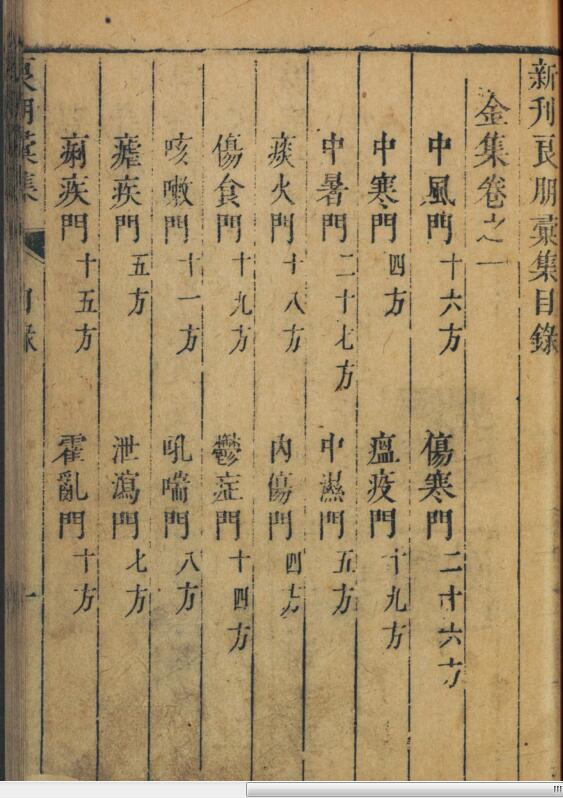 新刊良朋彙集目錄
金集卷之一
中風門十六方 傷寒門二十六方
中寒門四方 瘟疫門十九方
中暑門二十七方 中濕門五方
痰火門十八方 內傷門四方
傷食門十九方 鬱症門十四方
咳嗽門十一方 吼喘門八方
瘧疾門五方 泄瀉門七方
痢疾門十五方 霍亂門十方
良朋彙集 目錄 一